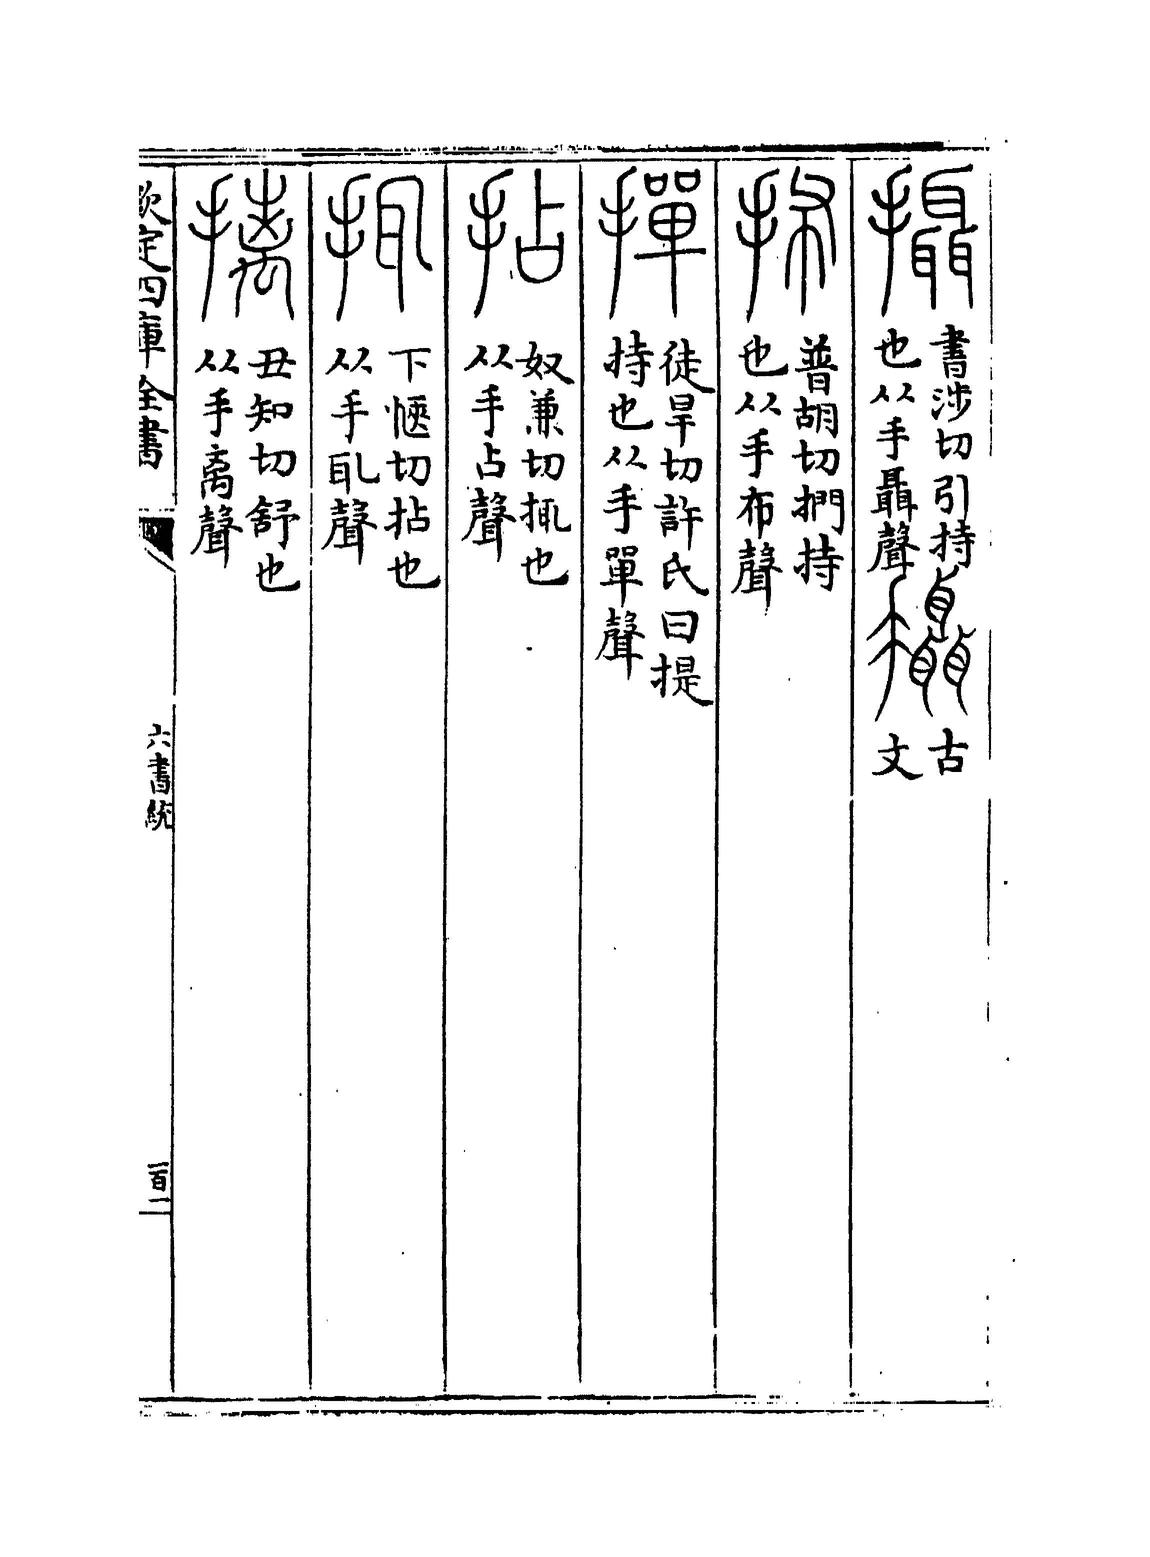 攝
書涉切引持
也从手聶聲
古
文
抪
普胡切捫持
也从手布聲
撣
徒旱切許氏曰提
持也从手單聲
拈
奴兼切 也
从手占聲
下愜切拈也
从手耴聲
摛
丑知切舒也
从手离聲
欽定四庫全書
六書統
一百一